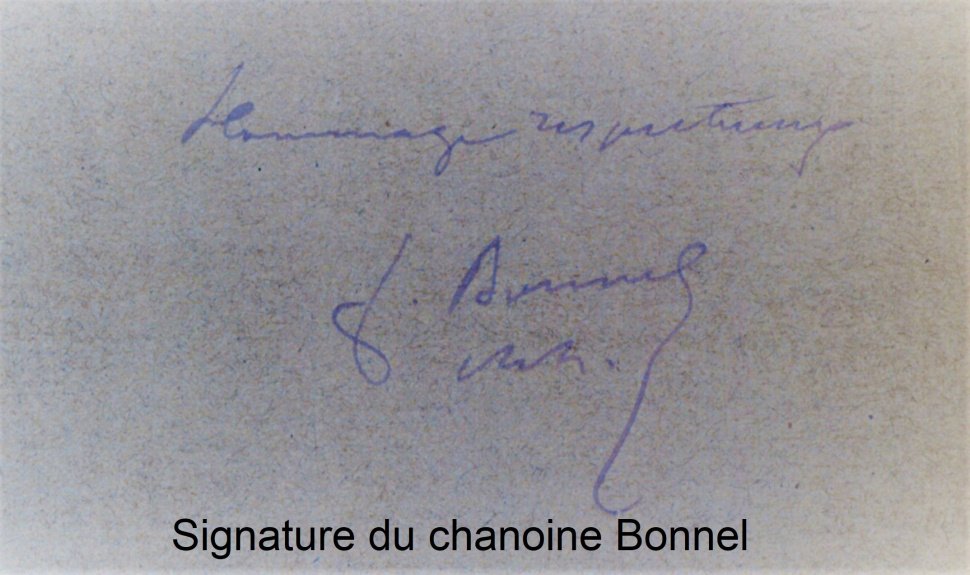 Hommage respectueux
J. Bonnel
ch. h.
Signature du chanoine Bonnel